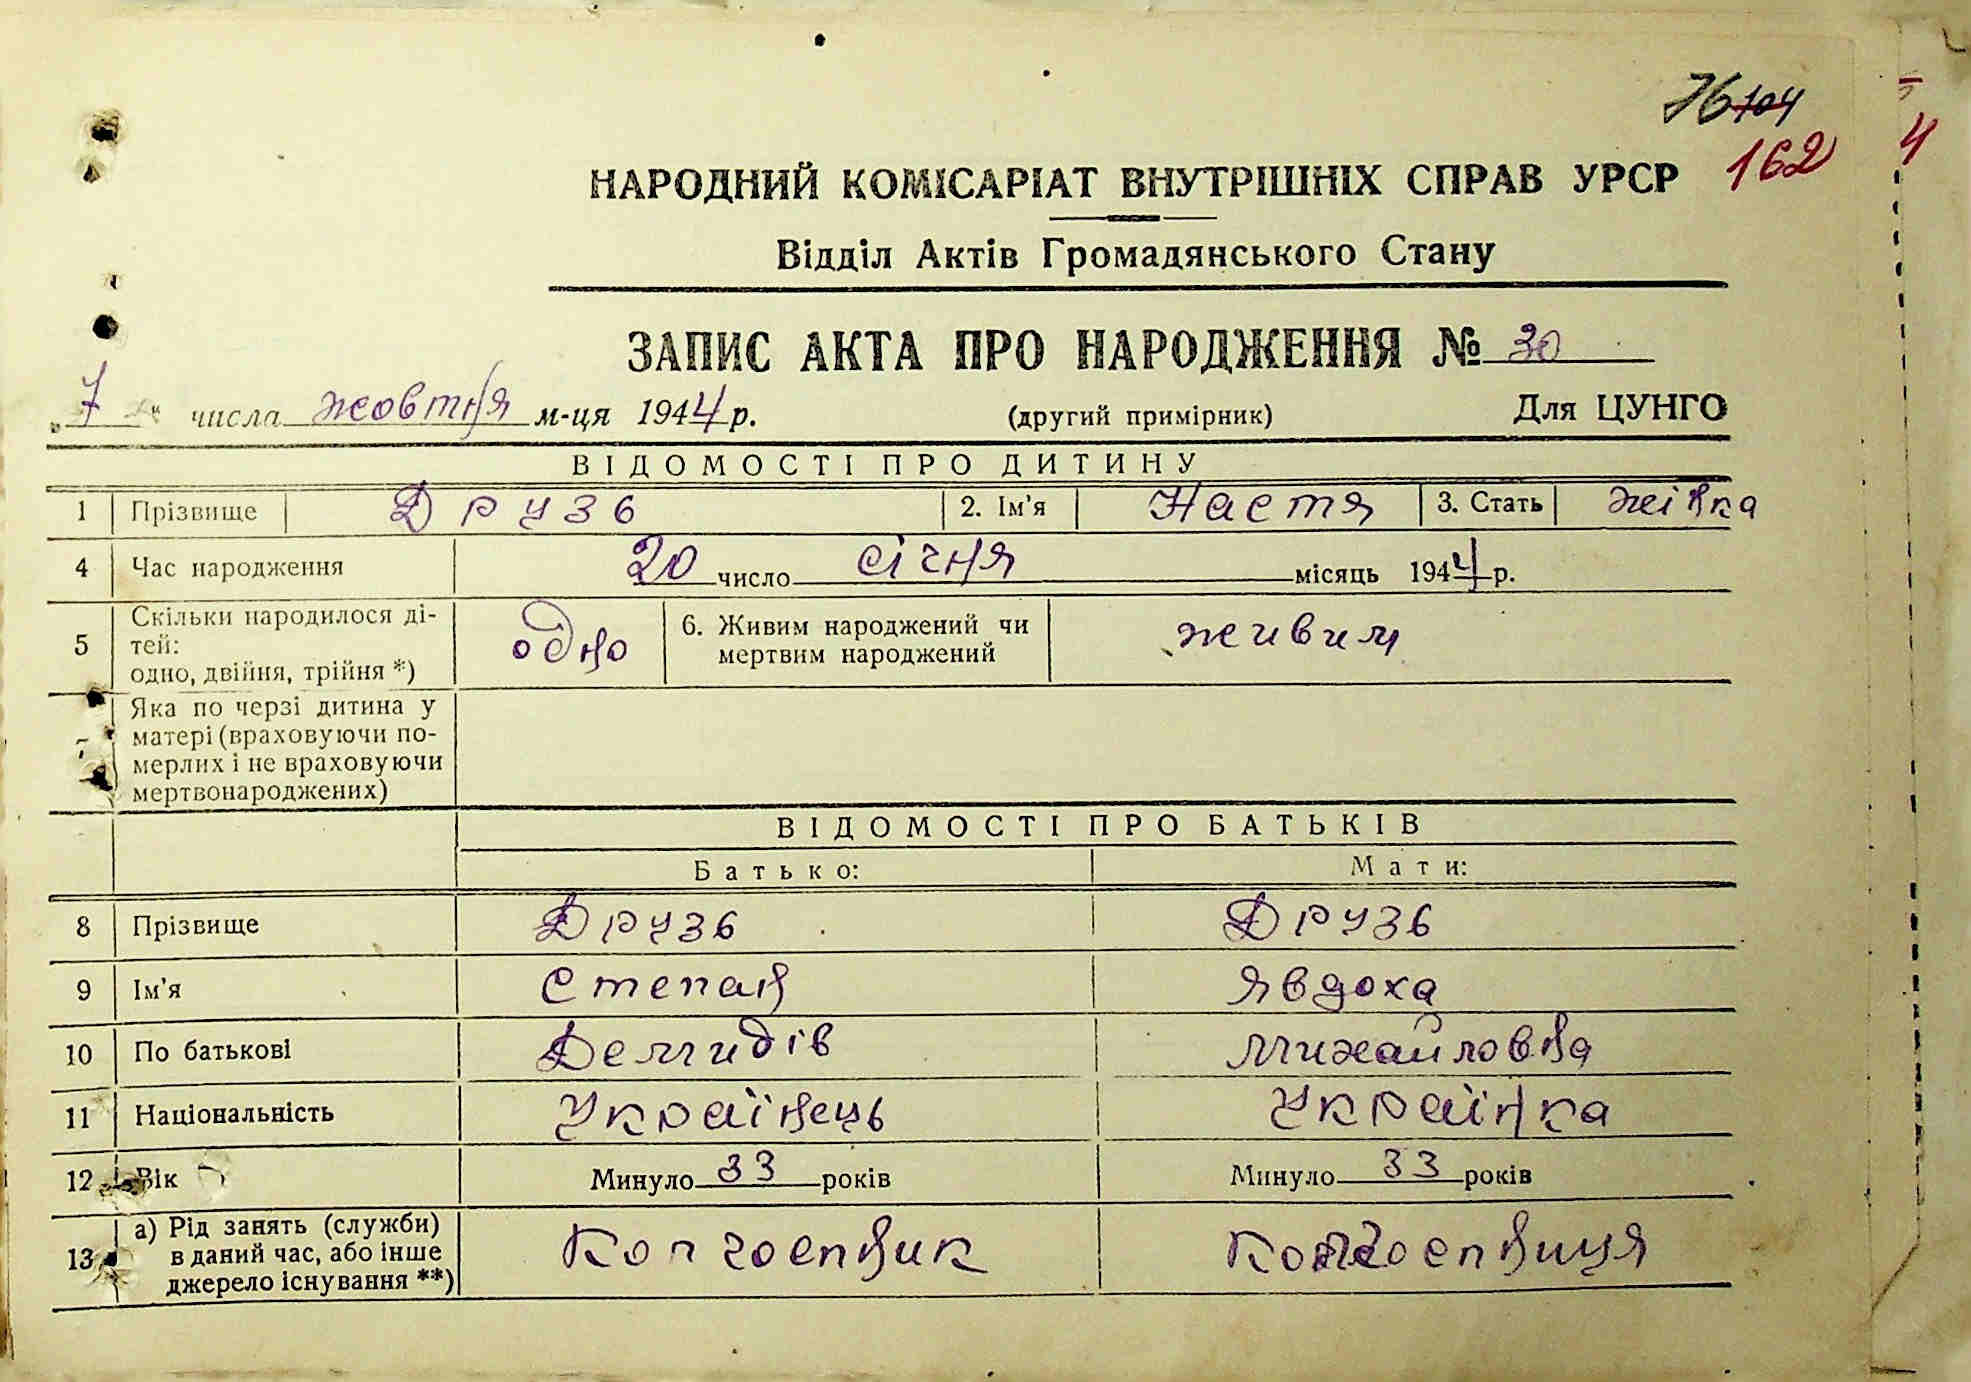 76 104
162 4
НАРОДНИЙ КОМІСАРІАТ ВНУТРІШНІХ СПРАВ УРСР
Відділ Актів Громадянського Стану
ЗАПИС АКТА ПРО НАРОДЖЕННЯ № 30
„ 7 “ числа жовтня м-ця 1944 р. (другий примірник) Для ЦУНГО
ВІДОМОСТІ ПРО ДИТИНУ
1 Прізвище Друзь 2. Ім'я Настя 3. Стать жінка
4 Час народження 20 число січня місяць 1944 р.
5 Скільки народилося ді-
тей:
одно, двійня, трійня *) одно 6. Живим народжений чи
мертвим народжений живим
7 Яка по черзі дитина у
матері (враховуючи по-
мерлих і не враховуючи
мертвонароджених)
ВІДОМОСТІ ПРО БАТЬКІВ
Батько: Мати:
8 Прізвище Друзь Друзь
9 Ім'я Степан Явдоха
10 По батькові Демидів Михайловна
11 Національність Українець Українка
12 Вік Минуло 33 років Минуло 33 років
13 а) Рід занять (служби)
в даний час, або інше
джерело існування **) Колгоепник Колгоепниця